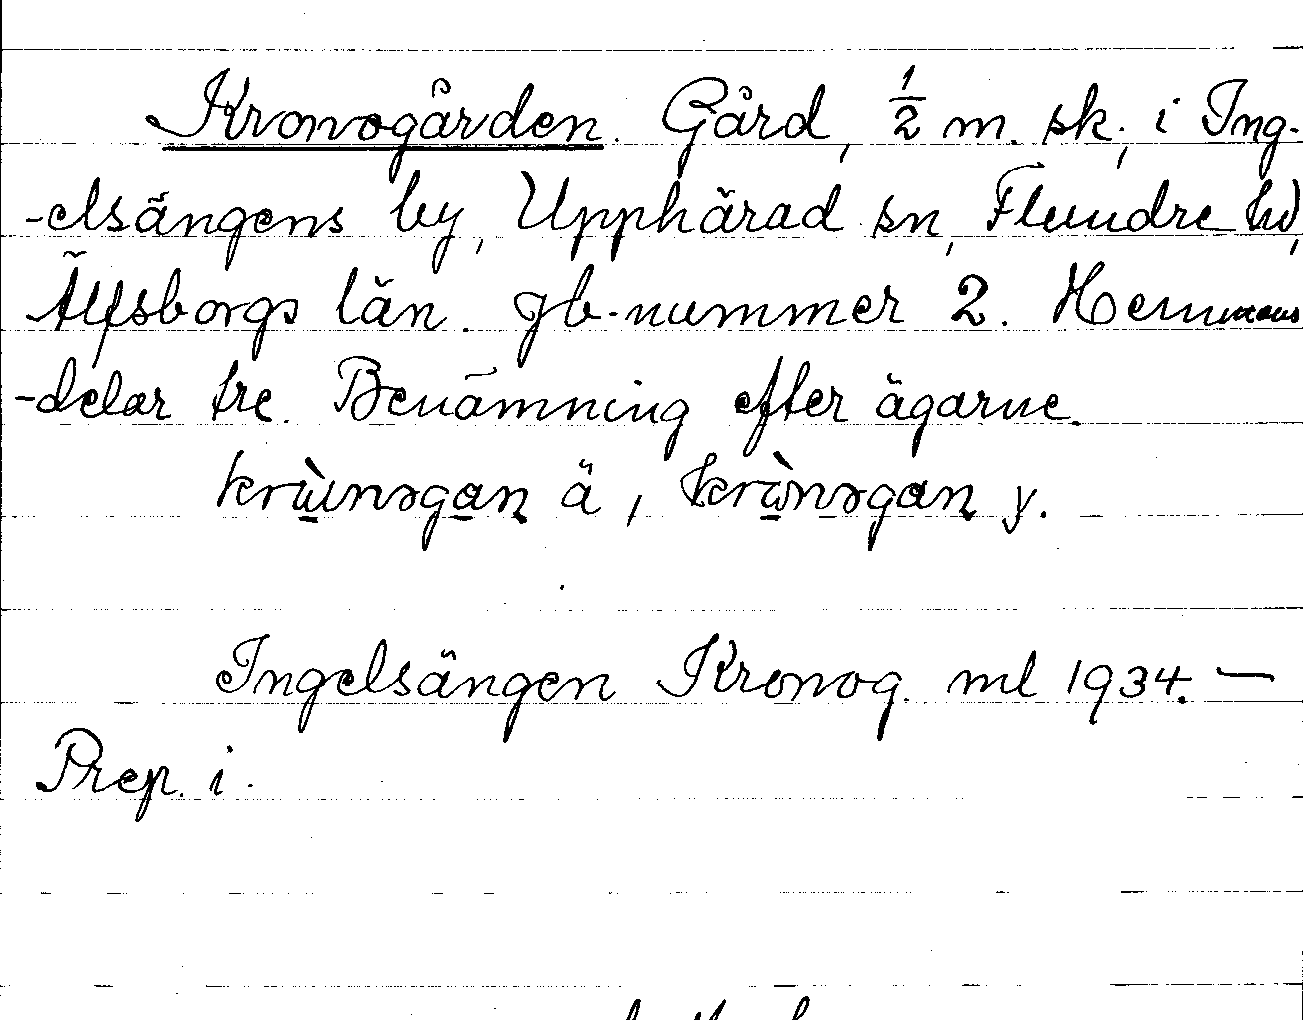 Kronogården. Gård, 1/2 m. sk., i Ing-
-elsängens by, Upphärad sn, Flundre hd,
Älfsborgs län. Jb.-nummer 2. Hemmans
-delar tre. Benämning efter ägarne.
ä, y.
Ingelsängen Kronog. ml 1934. —
Prep. i.